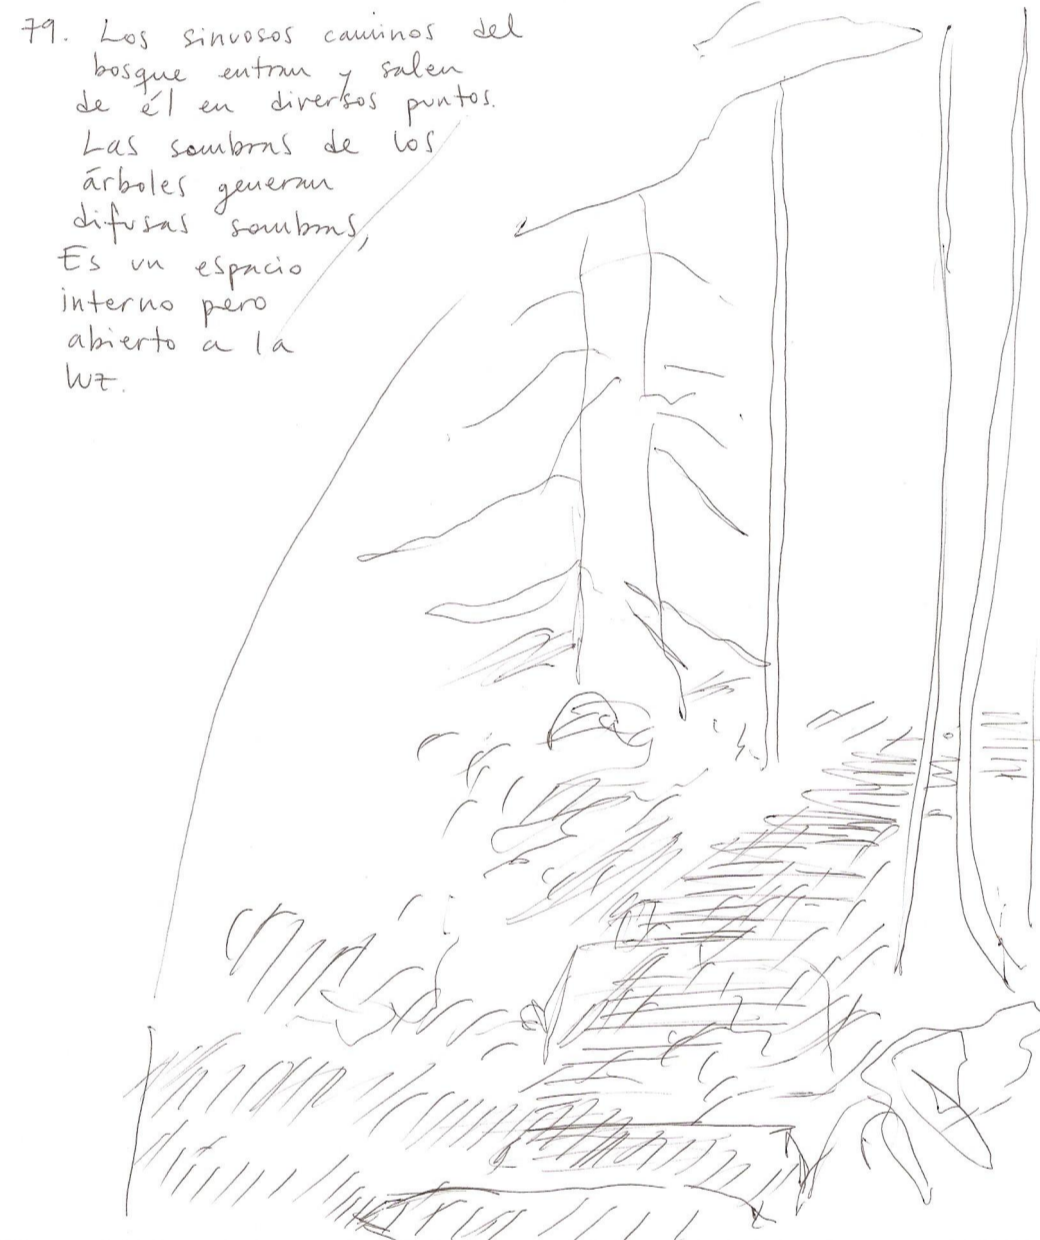 79. Los sinuosos caminos del
bosque entran y salen
de él en diversos puntos.
Las sombras de los
árboles generan
difusas sombras,
Es un espacio
interno pero
abierto a la
luz.